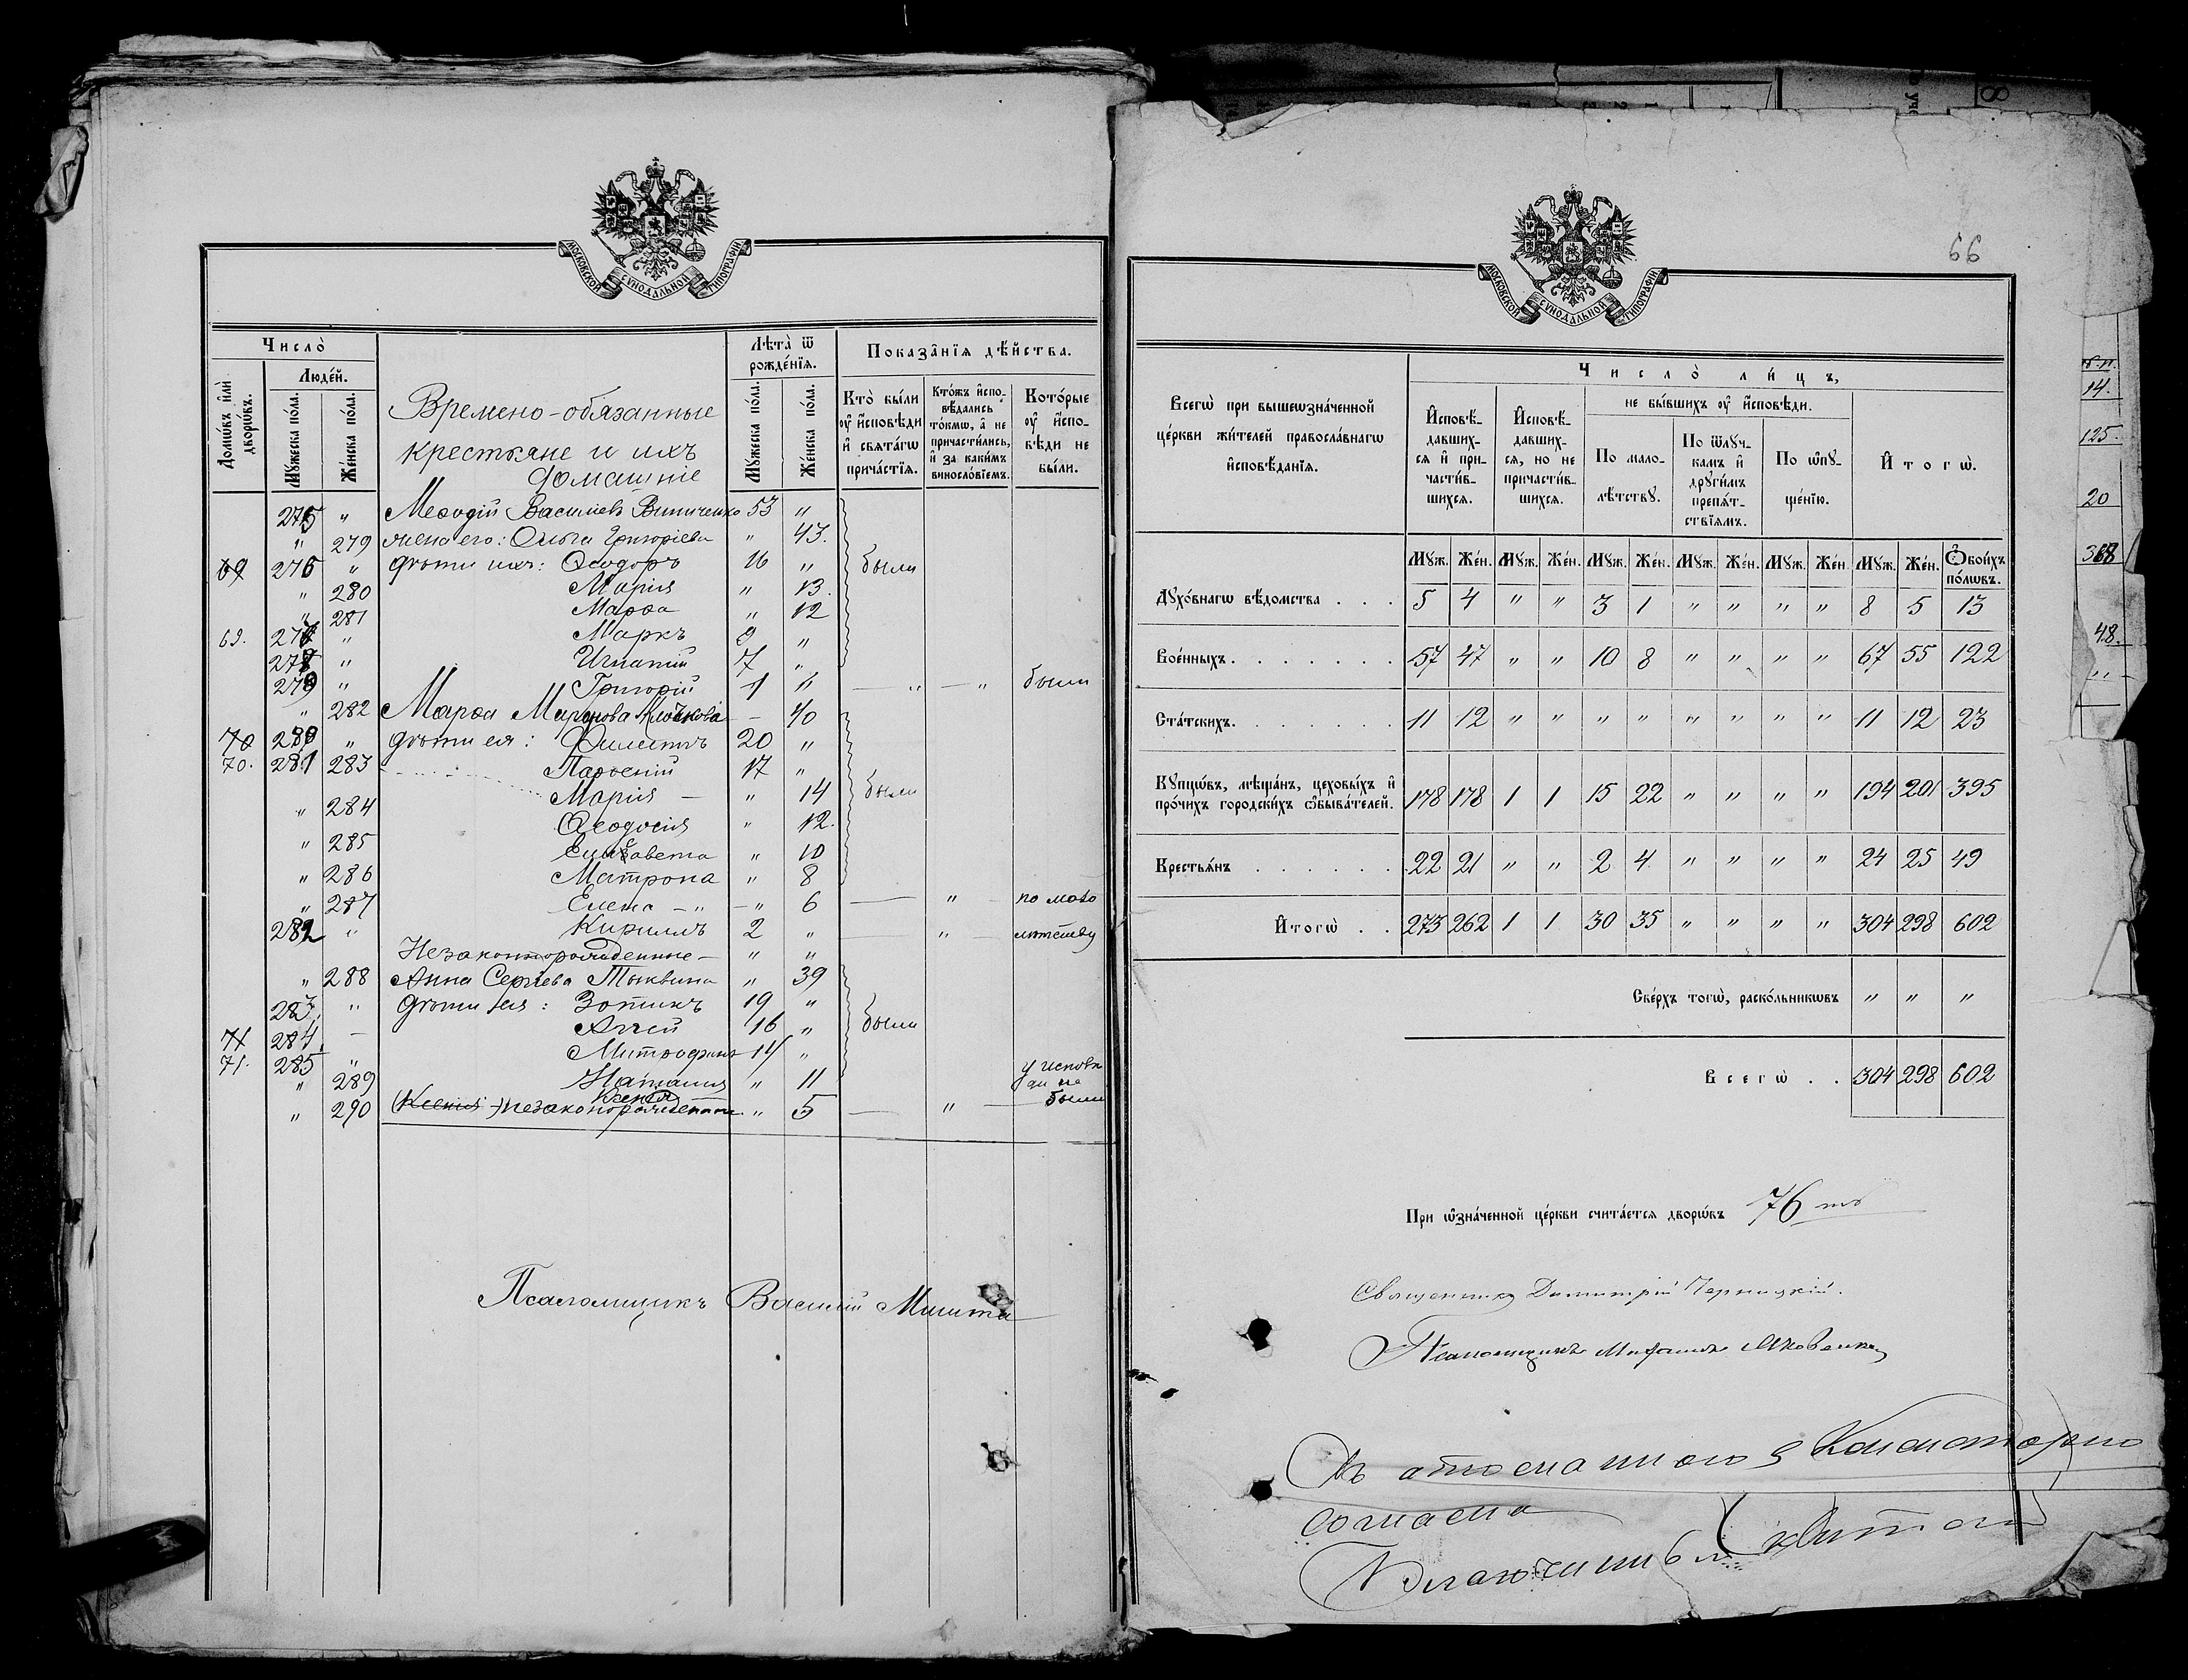 МОСКОВСКОЙ СѴНОДАЛЬНОЙ ТИПОГРАФІИ
Число̀
Домѡ́въ и҆лѝ дворѡ́въ.
Люде́й.
Мꙋ́жеска по́ла.
Же́нска по́ла.
Времено-обязанные
крестьяне и ихъ
домашніе
Лѣта̀ ѿ рожде́нїѧ.
Мꙋ́жеска по́ла.
Же́нска по́ла.
Показа̂нїѧ дѣ́йства.
Кто̀ бы́ли оу҆ и҆сповѣ́ди и҆ свѧта́гѡ прича́стїѧ.
Кто́жъ и҆сповѣ́дались то́кмѡ, а҆ не причасти́лись, и҆ за каки́мъ винословїемъ.
Кото́рые оу҆ и҆сповѣ́ди не бы́ли.
275 " Меѳодій Василіевъ Виниченко 53 "
" 279 жена его: Ольга Григоріева " 43.
69 276 " дѣти ихъ: Ѳеодоръ 16 " были
" 280 Марія " 13.
" 281 Марѳа " 12
69. 277 " Маркъ 9 "
278 " Игнатій 7 "
279 " Григорій 1 " — " — " были
" 282 Марѳа Маркова Клочкова — 40
70 280 " дѣти ея: Филиппъ 20 "
70. 281 283 Парѳеній 17 "
" 284 Марія — " 14 были
Ѳеодосія " 12.
" 285 Елизавета " 10
" 286 Матрона " 8
" 287 Елена — " — " 6 — " — по мало
282 " Кириллъ 2 " — " — лѣтству
Незаконнорожденные — " "
" 288 Анна Сергіева Тыквина " 39
283 " дѣти ея: Зотикъ 19 "
71 284 — Аггей 16 " были
71. 285 " Митрофанъ 14 "
" 289 Наталія " 11 у исповѣди не
Ксенія
" 290 (Ксенія) незаконорожденная " 5 — " — были
Псаломщикъ Василій Микита
66
МОСКОВСКОЙ СѴНОДАЛЬНОЙ ТИПОГРАФІИ
Всегѡ̀ при вышеѡзна́ченной це́ркви жи́телей правосла́внагѡ и҆сповѣ́данїѧ.
Число̀ ли́цъ,
И҆сповѣ́давшихсѧ и҆ причасти́вшихсѧ.
И҆сповѣ́давшихсѧ, но не причасти́вшихсѧ.
не бы́вшихъ оу҆ и҆сповѣ́ди.
По малолѣ́тствꙋ.
По ѿлꙋ́чкамъ и҆ дрꙋги́мъ препѧ́тствїѧмъ.
По ѡ҆пꙋще́нїю.
И҆тогѡ̀.
Мꙋж. Же́н. Мꙋж. Же́н. Мꙋж. Же́н. Мꙋж. Же́н. Мꙋж. Же́н. Мꙋж. Же́н. Ѻ҆бои́хъ по́лѡвъ.
Дꙋхо́внагѡ вѣ́домства . . . 5 4 " " 3 1 " " " " 8 5 13
Вое́нныхъ . . . . . . . 57 47 " " 10 8 " " " " 67 55 122
Ста́тскихъ . . . . . . . 11 12 " " " " " " " " 11 12 23
Кꙋпцѡ́въ, мѣща́нъ, цеховы́хъ и҆ про́чихъ городски́хъ ѡ҆быва́телей. 178 178 1 1 15 22 " " " " 194 201 395
Крестьѧ́нъ . . . . . . 22 21 " " 2 4 " " " " 24 25 49
И҆тогѡ̀ . . 273 262 1 1 30 35 " " " " 304 298 602
Све́рхъ тогѡ̀, раско́льникѡвъ " " "
Всегѡ̀ . . 304 298 602
При ѡ҆зна́ченной це́ркви счита́етсѧ дворѡ́въ 76 ть
Священникъ Димитрій Черницкій.
Псаломщикъ Михаилъ Яковенко
Съ отосланною въ Консисторію
согласна
Благочинный
14.
125.
20
368
48.